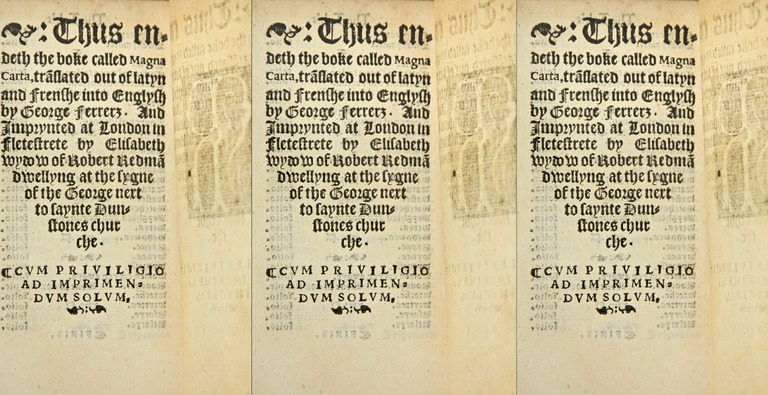 : Thus en-
deth the boke called Magna
Carta, trãslated out of latyn
and Frenshe into Englysh
by George Ferrerz. And
Imprynted at London in
Fletestrete by Elisabeth
wydow of Robert Redmã
dwellyng at the sygne
of the George next
to saynte Dun-
stones chur
che.
¶CVM PRIVILIGIO
AD IMPRIMEN-
DVM SOLVM,
: Thus en-
deth the boke called Magna
Carta, trãslated out of latyn
and Frenshe into Englysh
by George Ferrerz. And
Imprynted at London in
Fletestrete by Elisabeth
wydow of Robert Redmã
dwellyng at the sygne
of the George next
to saynte Dun-
stones chur
che.
¶CVM PRIVILIGIO
AD IMPRIMEN-
DVM SOLVM,
: Thus en-
deth the boke called Magna
Carta, trãslated out of latyn
and Frenshe into Englysh
by George Ferrerz. And
Imprynted at London in
Fletestrete by Elisabeth
wydow of Robert Redmã
dwellyng at the sygne
of the George next
to saynte Dun-
stones chur
che.
¶CVM PRIVILIGIO
AD IMPRIMEN-
DVM SOLVM,